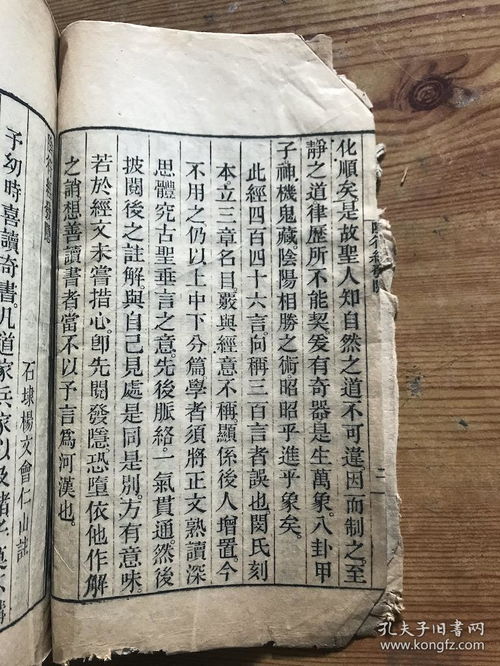 化順矣是故聖人知自然之道不可違因而制之至
靜之道律歷所不能契爰有奇器是生萬象八卦甲
子神機鬼藏陰陽相勝之術昭昭乎進乎象矣。
此經四百四十六言。向稱三百言者誤也。閔氏刻
本立三章名目。覈與經意不稱。顯係後人增置。今
不用之。仍以上中下分篇。學者須將正文熟讀深
思。體究古聖垂言之意。先後脈絡。一氣貫通。然後
披閱後之註解。與自己見處是同是別。方有意味。
若於經文未嘗措心。卽先閱發隱。恐墮依他作解
之誚。想善讀書者。當不以予言爲河漢也。
陰符經發隱
石埭楊文會仁山註
予幼時喜讀奇書。凡道家兵家以及諸子莫不購
二
孔夫子旧書网
www.kongfz.com